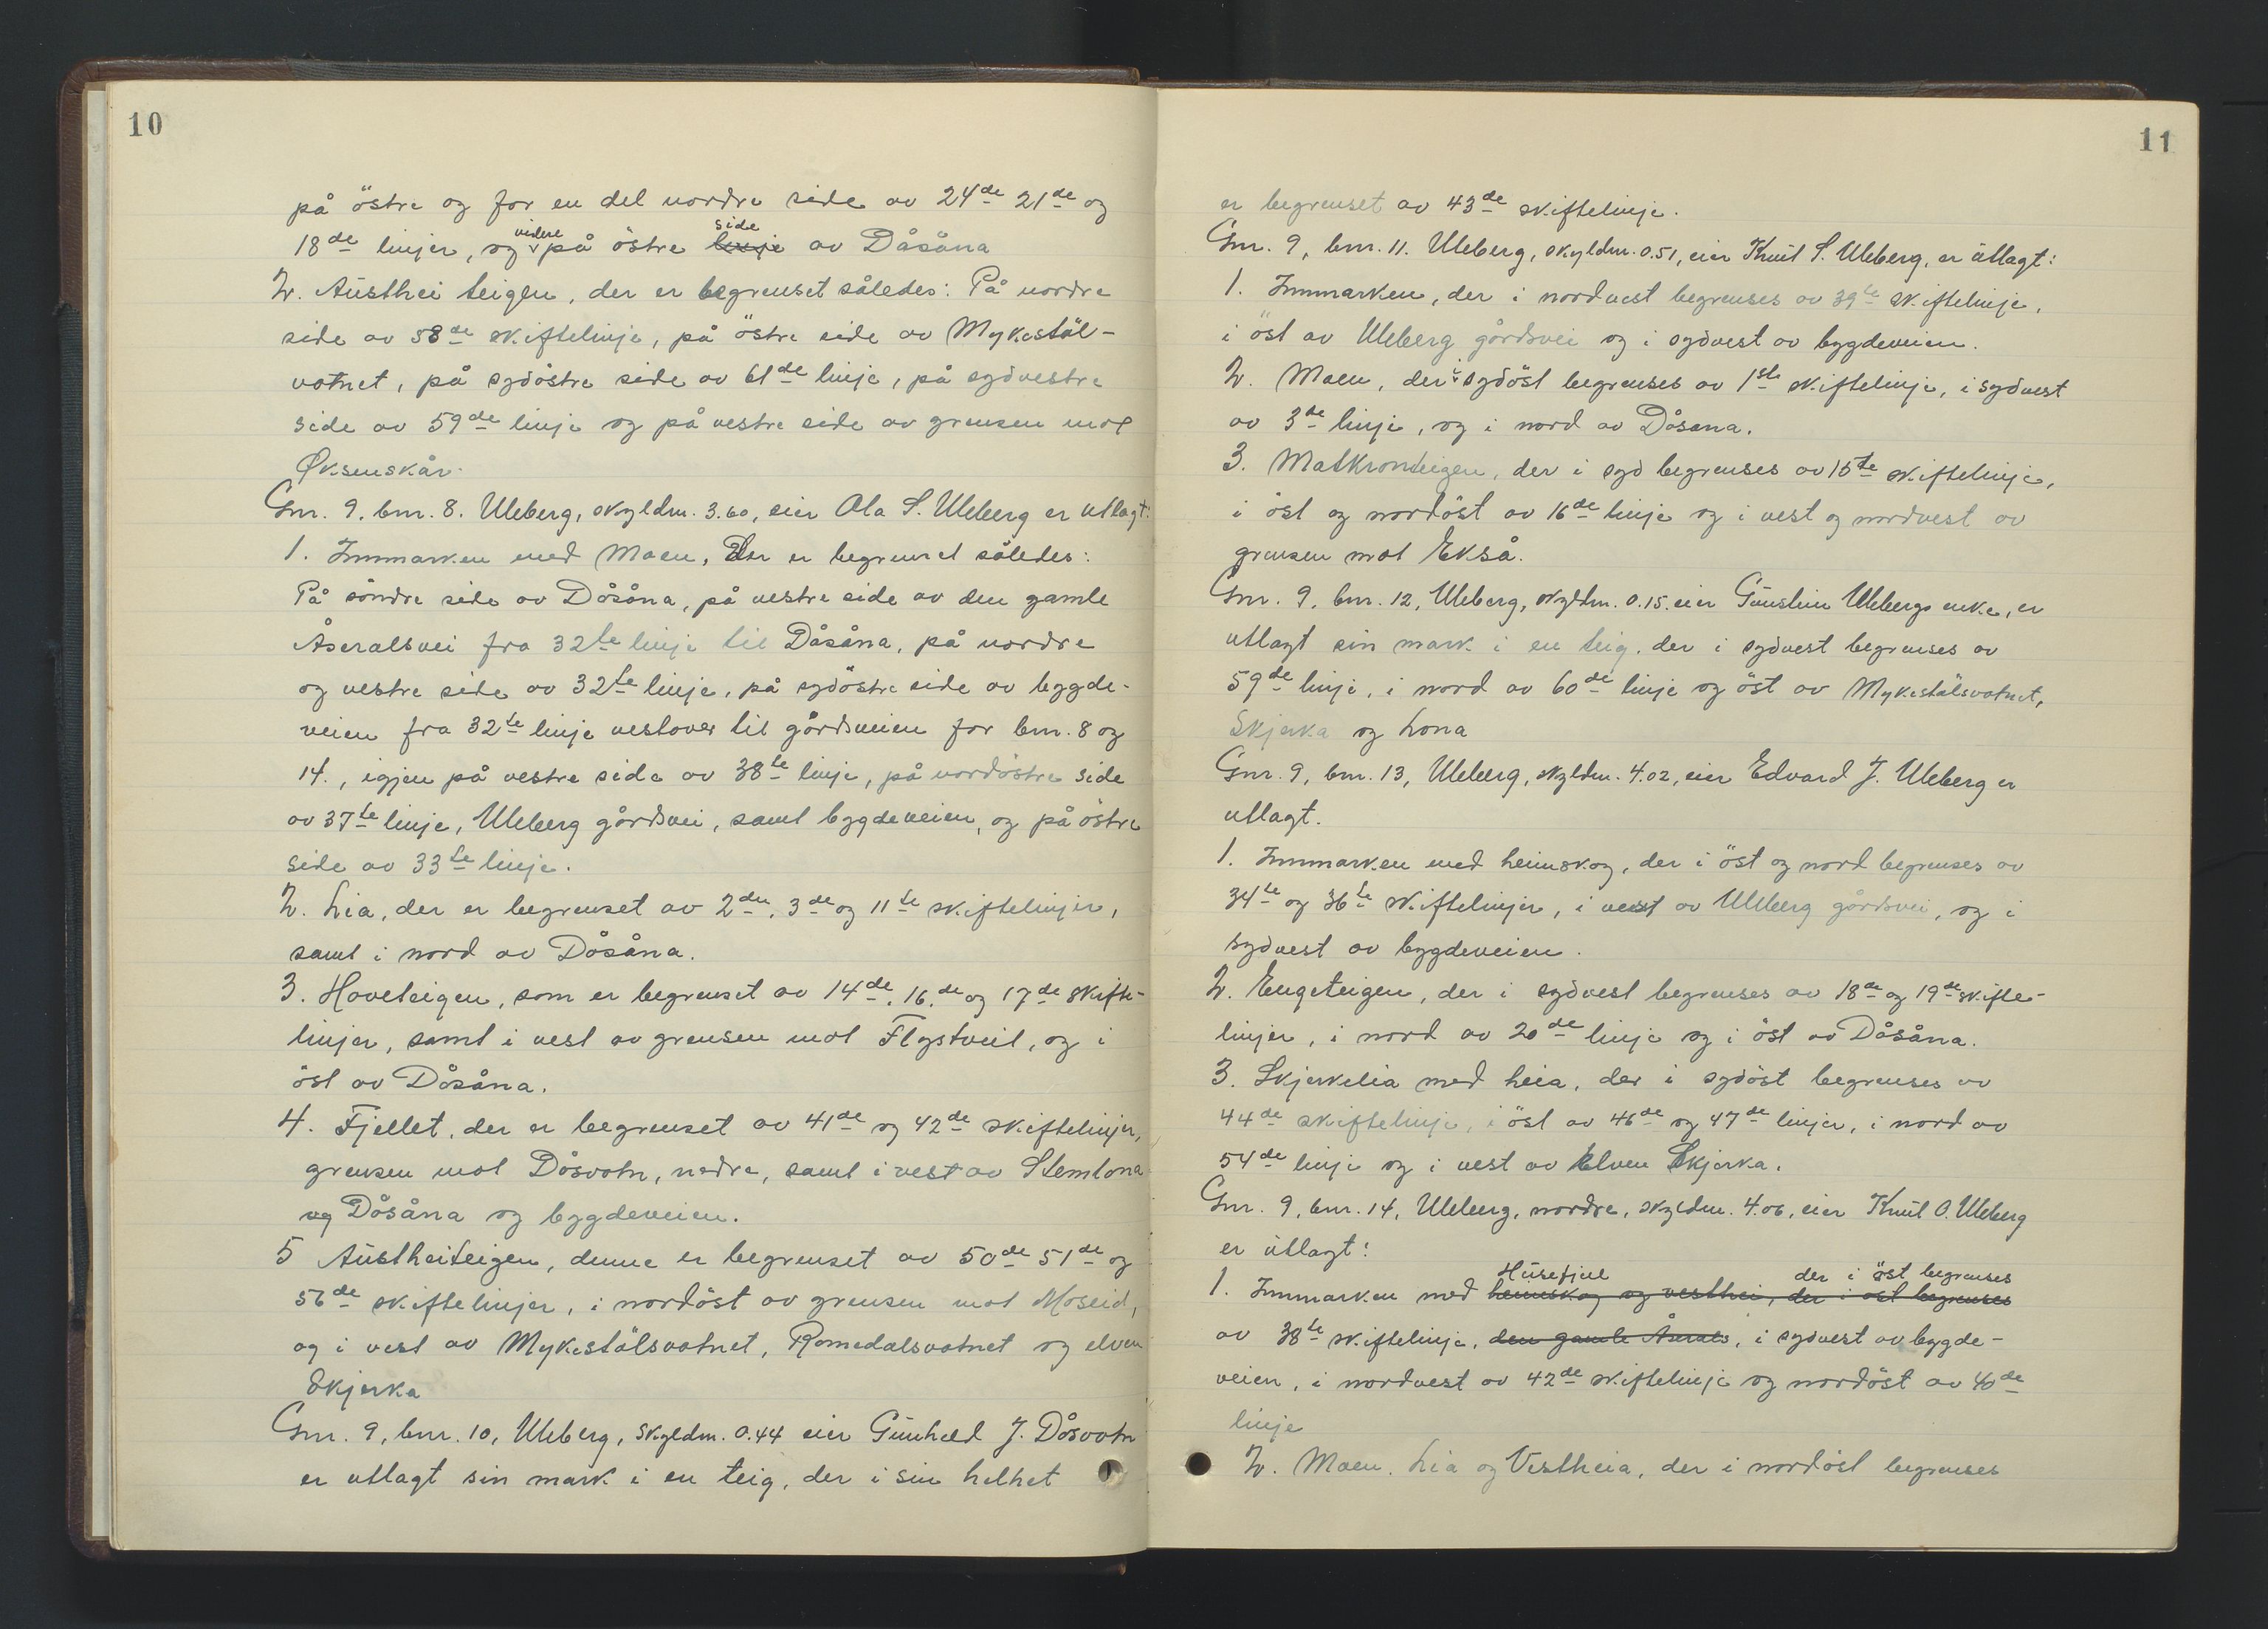 10
på östre og for en del nordre side av 24de 21de og
18de linjer, og videre på östre linje side av Dåsåna
2. Austhei teigen, der er begrenset således: På nordre
side av 58de skiftelinje, på östre side av Mykestöl-
votnet, på sydöstre side av 61de linje, på sydvestre
side av 59de linje og på vestre side av grensen mot
Øksenskår.
Gnr. 9, bnr. 8. Uleberg, skyldm. 3.60, eier Ola S. Uleberg er utlagt:
1. Innmarken med Moen, der er begrenset således:
På söndre side av Dåsåna, på vestre side av den gamle
Åseralsvei fra 32te linje til Dåsåna, på nordre
og vestre side av 32te linje, på sydöstre side av bygde-
veien fra 32te linje vestover til gårdsveien for bnr. 8 og
14., igjen på vestre side av 38te linje, på nordöstre side
av 37te linje, Uleberg gårdsvei, samt bygdeveien, og på östre
side av 33te linje.
2. Lia, der er begrenset av 2den, 3de og 11te skiftelinjer,
samt i nord av Dåsåna.
3. Hoveteigen, som er begrenset av 14de, 16.de og 17de skifte-
linjer, samt i vest av grensen mot Flystveit, og i
öst av Dåsåna.
4. Fjellet, der er begrenset av 41de og 42de skiftelinjer,
grensen mot Dåsvotn, nedre, samt i vest av Stemlona
og Dåsåna og bygdeveien.
5 Austheiteigen, denne er begrenset av 50de 51de og
56de skiftelinjer, i nordöst av grensen mot Moseid,
og i vest av Mykestölsvotnet, Romedalsvotnet og elven
Skjerka
Gnr. 9, bnr. 10, Uleberg, skyldm. 0.44 eier Gunhild J. Dåsvotn
er utlagt sin mark i en teig, der i sin helhet
11
er begrenset av 43de skiftelinje.
Gnr. 9, bnr. 11. Uleberg, skyldm. 0.51, eier Knut S. Uleberg, er utlagt:
1. Innmarken, der i nordvest begrenses av 39te skiftelinje,
i öst av Uleberg gårdsvei og i sydvest av bygdeveien.
2. Moen, der i sydöst begrenses av 1ste skiftelinje, i sydvest
av 3de linje, og i nord av Dåsåna.
3. Matkronteigen, der i syd begrenses av 15te skiftelinje,
i öst og nordöst av 16de linje og i vest og nordvest av
grensen mot Ekså.
Gnr. 9, bnr. 12, Uleberg, skyldm. 0.15. eier Gunstein Ulebergs enke, er
utlagt sin mark i en teig, der i sydvest begrenses av
59de linje, i nord av 60de linje og öst av Mykestölsvotnet,
Skjerka og Lona
Gnr. 9, bnr. 13, Uleberg, skyldm. 4.02, eier Edvard J. Uleberg er
utlagt.
1. Innmarken med heimskog, der i öst og nord begrenses av
34te og 36te skiftelinjer, i vest av Uleberg gårdsvei, og i
sydvest av bygdeveien.
2. Engeteigen, der i sydvest begrenses av 18de og 19de skifte-
linjer, i nord av 20de linje og i öst av Dåsåna.
3. Skjerkelia med heia, der i sydöst begrenses av
44de skiftelinje, i öst av 46de og 47de linjer, i nord av
54de linje og i vest av Elven Skjerka.
Gnr. 9, bnr. 14, Uleberg, nordre, skyldm. 4.06, eier Knut O. Uleberg
er utlagt:
Husefjell der i öst begrenses
1. Innmarken med heimskog og vesthei, der i öst begrenses
av 38te skiftelinje, den gamle Åserals, i sydvest av bygde-
veien, i nordvest av 42de skiftelinje og nordöst av 40de
linje
2. Moen, Lia og Vestheia, der i nordöst begrenses